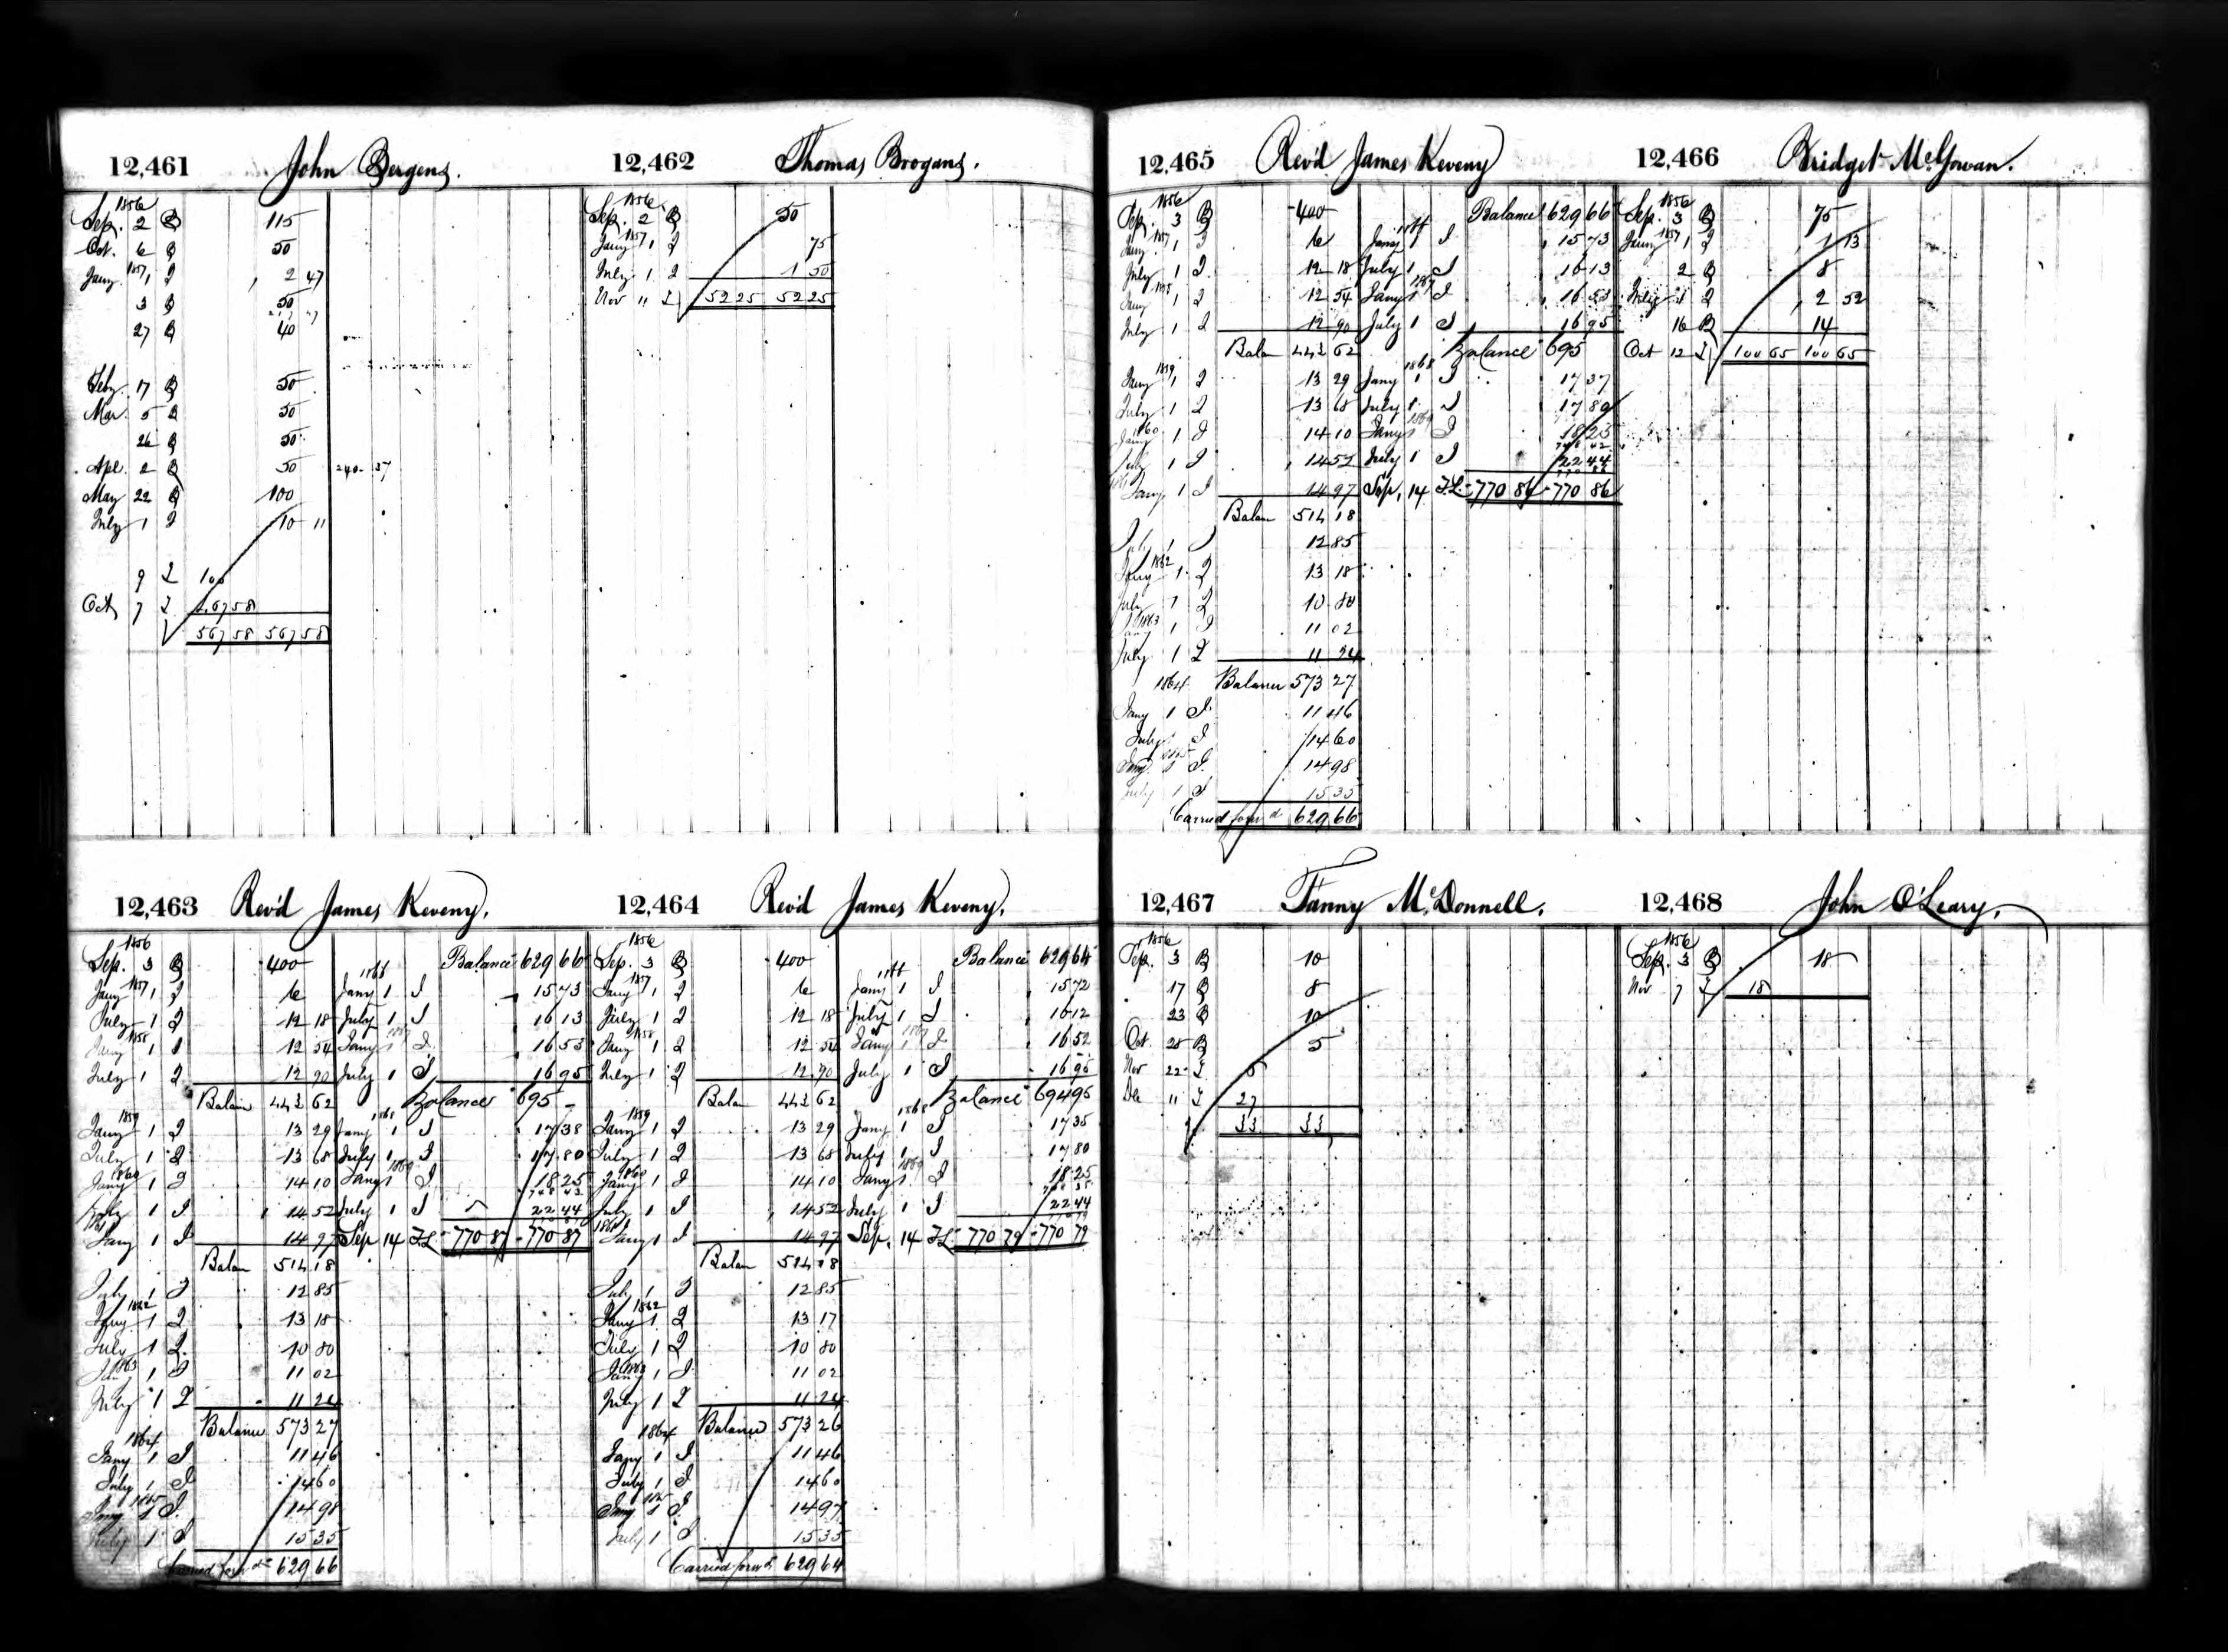 12,461 John Bergens.
1856
Sep. 2 B 115
Oct. 6 B 50
1857
Jany 1 I 2 47
3 B 50
27 B 40
Feby 17 B 50
Mar. 5 B 50
26 B 50
Apl. 2 B 50 240 37
May 22 B 100
July 1 I 10 11
9 L 100
Oct 7 L 467 58
567 58 567 58
12,462 Thomas Brogans.
1856
Sep. 2 B 50
1857
Jany 1 I 75
July 1 I 1 50
Nov 11 L 52 25 52 25
12,463 Rev'd James Keveny.
1856
Sep. 3 B 400
1857
Jany 1 I 6
July 1 I 12 18
1858
Jany 1 I 12 54
July 1 I 12 90
Balan 443 62
1859
Jany 1 I 13 29
July 1 I 13 68
1860
Jany 1 I 14 10
July 1 I 14 52
1861
Jany 1 I 14 97
Balan 514 18
July 1 I 12 85
1862
Jany 1 I 13 18
July 1 I 10 80
1863
Jany 1 I 11 02
July 1 I 11 24
Balance 573 27
1864
Jany 1 I 11 46
July 1 I 14 60
1865
Jany 1 I 14 98
July 1 I 15 35
Carried forwd 629 66
Balance 629 66
1866
Jany 1 I 15 73
July 1 I 16 13
1867
Jany 1 I 16 53
July 1 I 16 95
Balance 695 -
1868
Jany 1 I 17 38
July 1 I 17 80
1869
Jany 1 I 18 25
748 43
July 1 I 22 44
Sep 14 IL 770 87 770 87
12,464 Rev'd James Keveny.
1856
Sep. 3 B 400
1857
Jany 1 I 6
July 1 I 12 18
1858
Jany 1 I 12 54
July 1 I 12 90
Balan 443 62
1859
Jany 1 I 13 29
July 1 I 13 68
1860
Jany 1 I 14 10
July 1 I 14 52
1861
Jany 1 I 14 97
Balan 514 18
July 1 I 12 85
1862
Jany 1 I 13 17
July 1 I 10 80
1863
Jany 1 I 11 02
July 1 I 11 24
Balance 573 26
1864
Jany 1 I 11 46
July 1 I 14 60
1865
Jany 1 I 14 97
July 1 I 15 35
Carried forwd 629 64
Balance 629 64
1866
Jany 1 I 15 72
July 1 I 16 12
1867
Jany 1 I 16 52
July 1 I 16 95
Balance 694 95
1868
Jany 1 I 17 35
July 1 I 17 80
1869
Jany 1 I 18 25
748 35
July 1 I 22 44
Sep. 14 IL 770 79 770 79
12,465 Rev'd James Keveny
1856
Sep. 3 B 400
1857
Jany 1 I 6
July 1 I 12 18
1858
Jany 1 I 12 54
July 1 I 12 90
Balan 443 62
1859
Jany 1 I 13 29
July 1 I 13 68
1860
Jany 1 I 14 10
July 1 I 14 52
1861
Jany 1 I 14 97
Balan 514 18
July 1 I 12 85
1862
Jany 1 I 13 18
July 1 I 10 80
1863
Jany 1 I 11 02
July 1 I 11 24
1864 Balance 573 27
Jany 1 I 11 46
July 1 I 14 60
1865
Jany 1 I 14 98
July 1 I 15 35
Carried forwd 629 66
Balance 629 66
1866
Jany 1 I 15 73
July 1 I 16 13
1867
Jany 1 I 16 53
July 1 I 16 95
Balance 695
1868
Jany 1 I 17 37
July 1 I 17 80
1869
Jany 1 I 18 25
748 42
July 1 I 22 44
770 86
Sep. 14 IL 770 86 770 86
12,466 Bridget McGowan.
1856
Sep. 3 B 75
1857
Jany 1 I 1 13
2 B 8
July 1 I 2 52
16 B 14
Oct 12 L 100 65 100 65
12,467 Fanny McDonnell.
1856
Sep. 3 B 10
17 B 8
23 B 10
Oct. 28 B 5
Nov 22 L 6
De 11 L 27
33 33
12,468 John O'Leary,
1856
Sep. 3 B 18
Nov 7 L 18